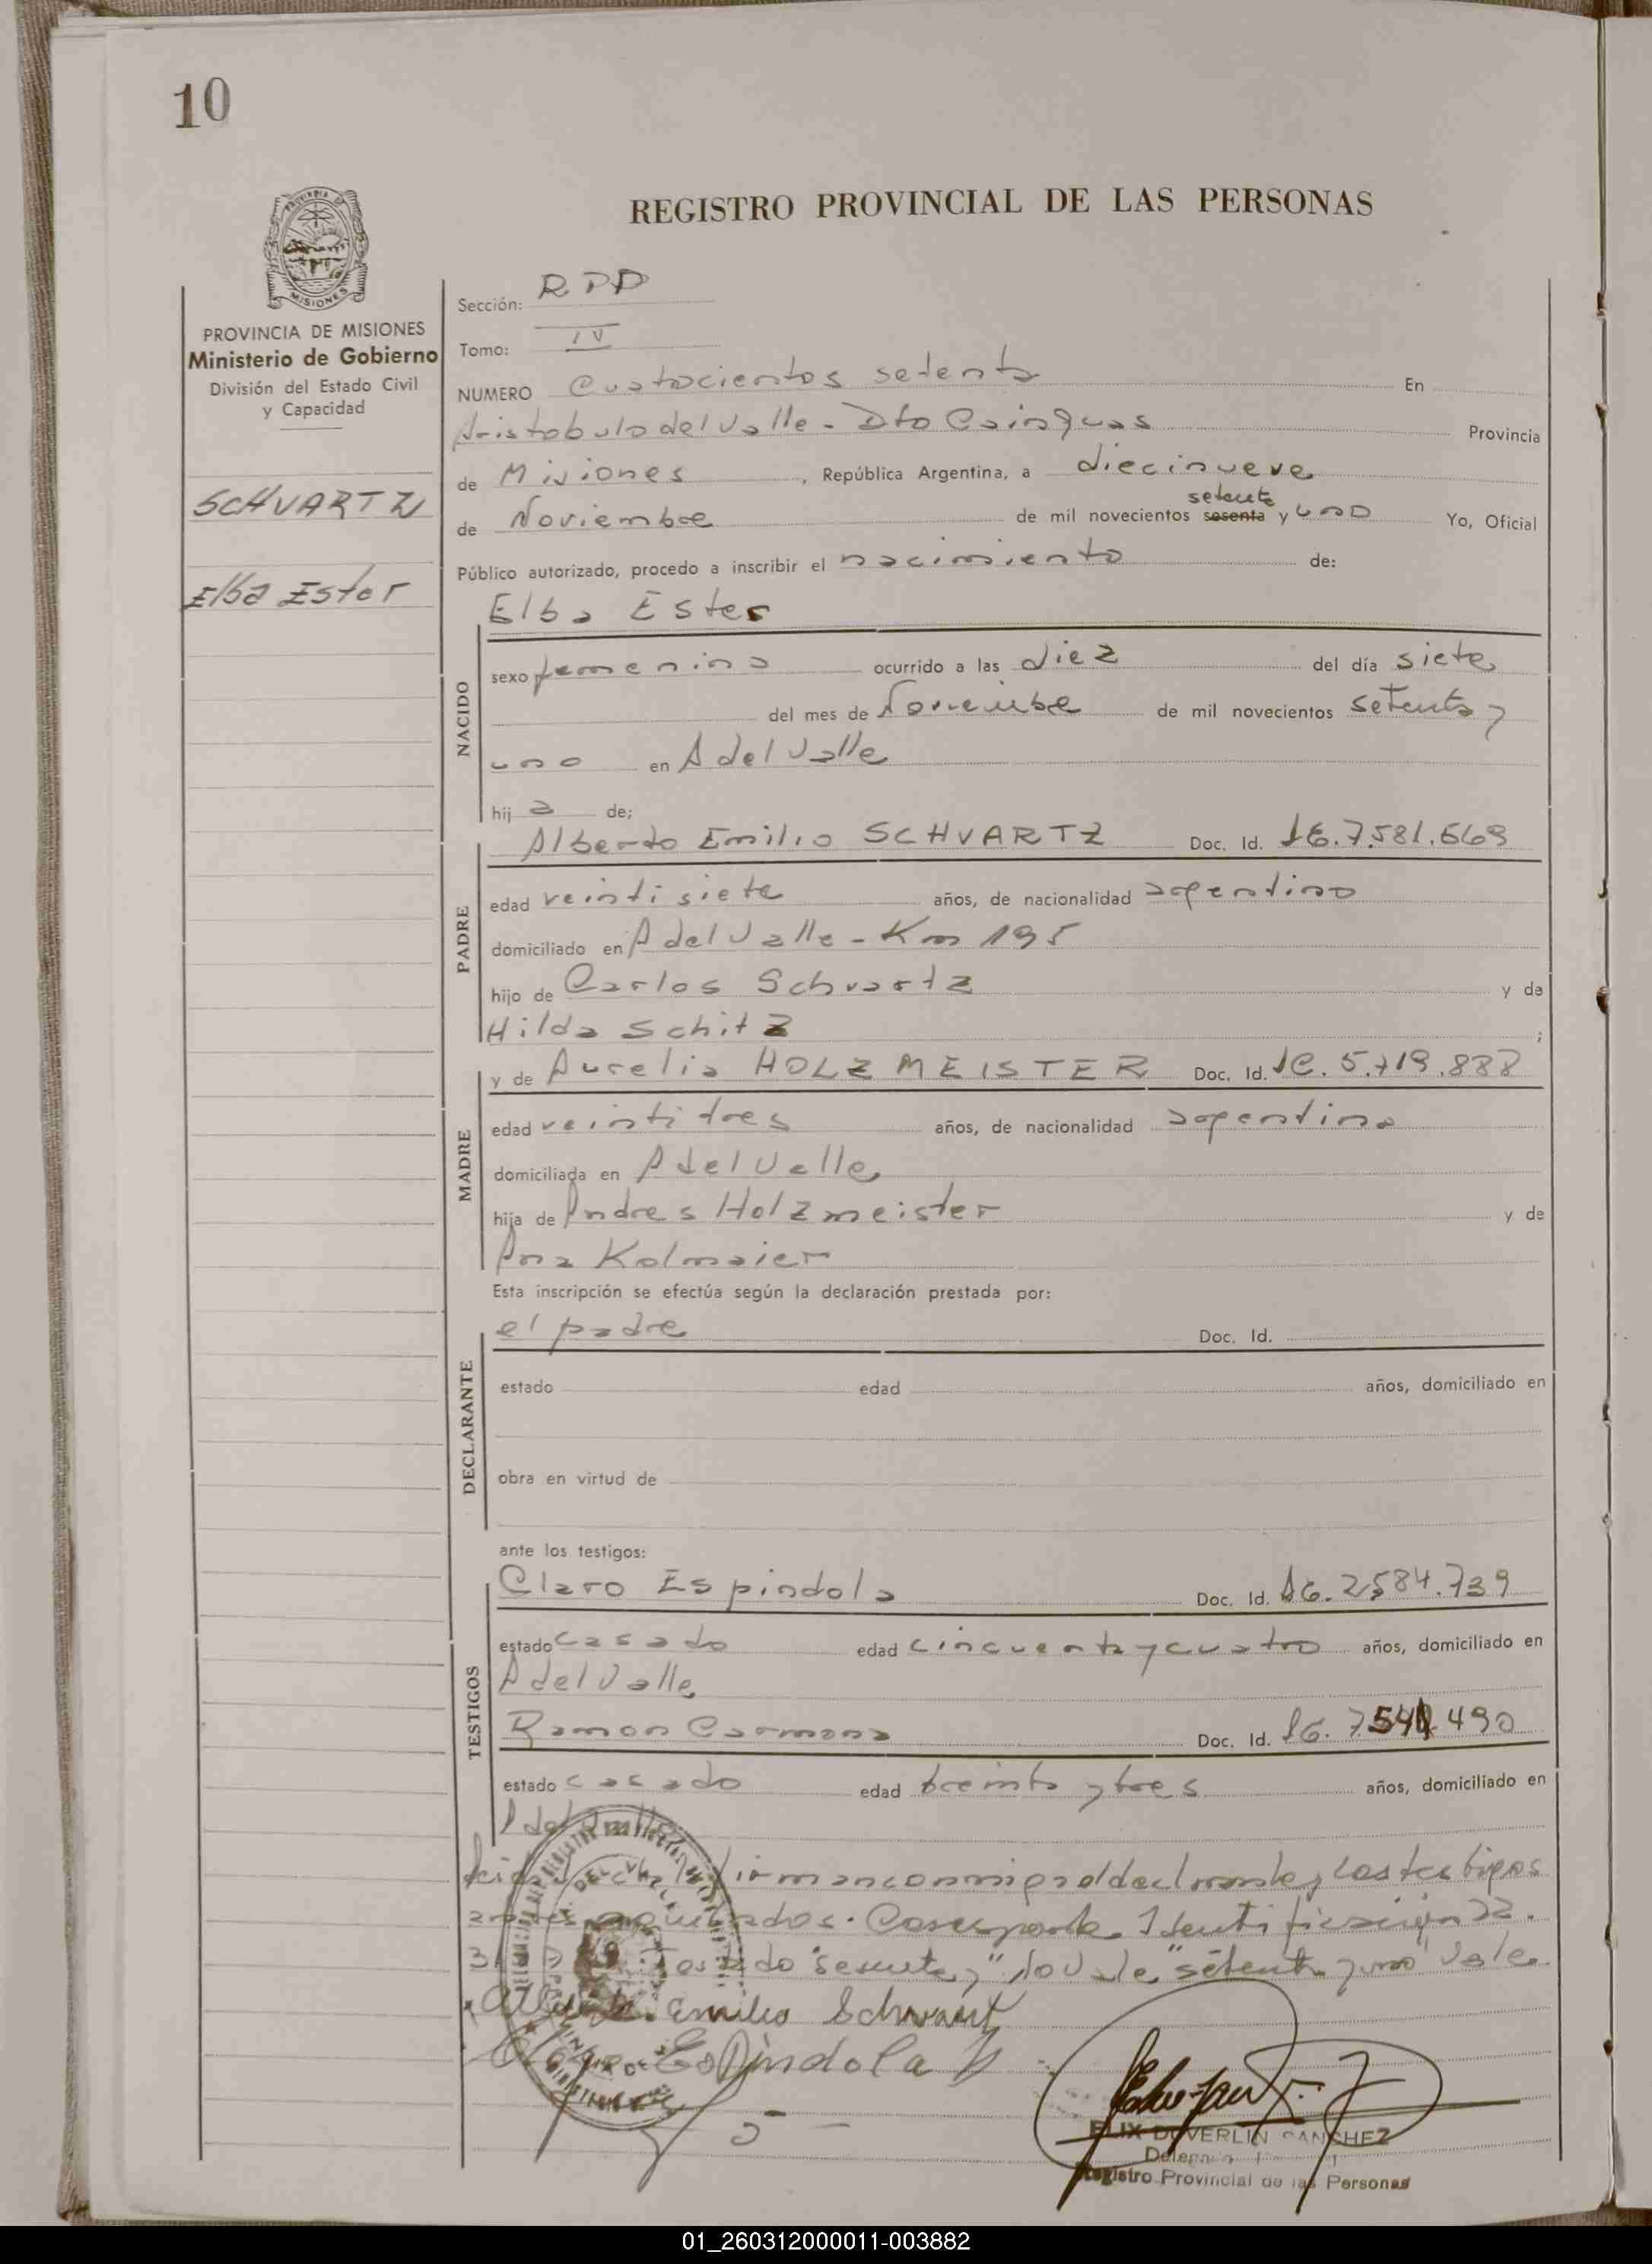 10
REGISTRO PROVINCIAL DE LAS PERSONAS
MISIONES
PROVINCIA DE MISIONES
Ministerio de Gobierno
División del Estado Civil
y Capacidad
SCHVARTZ
Elba Ester
Sección:
Tomo: IV
NUMERO Cuatrocientos setenta En
Aristobulo del Valle - Dto Cainguas Provincia
de Misiones, República Argentina, a diecinueve
setenta
de Noviembre de mil novecientos sesenta y uno Yo, Oficial
Público autorizado, procedo a inscribir el nacimiento de:
Elba Ester
NACIDO
sexo femenino ocurrido a las diez del día siete
del mes de Noviembre de mil novecientos setenta y
uno en A del Valle
hij a de;
Alberto Emilio SCHVARTZ Doc. Id. 7.581.669
PADRE
edad veintisiete años, de nacionalidad argentino
domiciliado en A del Valle - Km 195
hijo de Carlos Schvartz y de
Hilda Schitz ;
y de Aurelia HOLZMEISTER Doc. Id.
MADRE
edad veintitres años, de nacionalidad argentina
domiciliada en A del Valle
hija de Andres Holzmeister y de
Ana Kolmaier
Esta inscripción se efectúa según la declaración prestada por:
el padre Doc. Id.
DECLARANTE
estado edad años, domiciliado en
obra en virtud de
ante los testigos:
Claro Espindola Doc. Id. 2.584.739
TESTIGOS
estado casado edad cincuenta y cuatro años, domiciliado en
A del Valle
Ramon Carmona Doc. Id.
estado casado edad treinta y tres años, domiciliado en
A del Valle
Leida el acta firman conmigo el declarante y los testigos
antes nombrados. Identificación 22.
Testado "sesenta y" No Vale "setenta y uno" Vale.
Emilio Schwartz
Espindola
SANCHEZ
Registro Provincial de las Personas
01_260312000011-003882